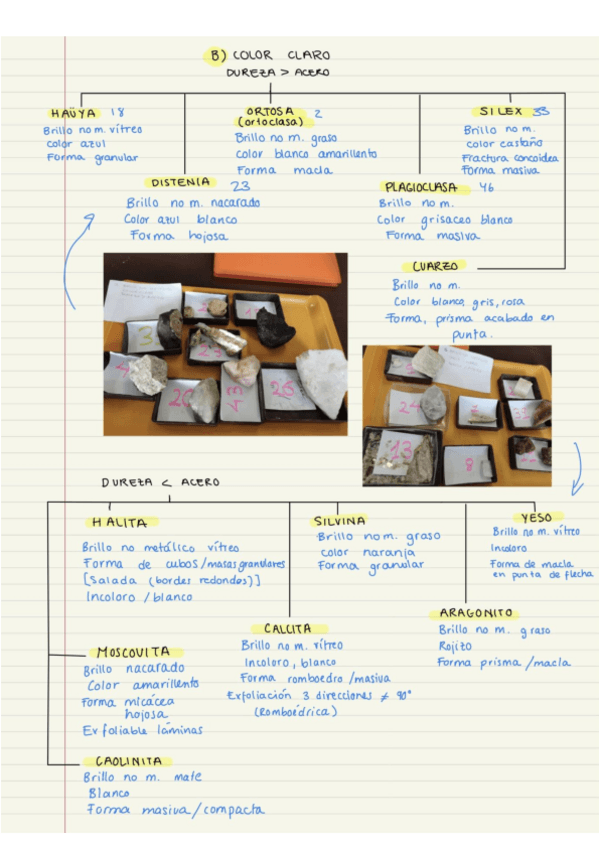 B) COLOR CLARO
DUREZA > ACERO
HAÜYA 18
Brillo no m. vítreo
color azul
Forma granular
ORTOSA 2
(ortoclasa)
Brillo no m. graso
color blanco amarillento
Forma macla
SILEX 33
Brillo no m.
color castaño
Fractura concoidea
Forma masiva
DISTENIA 23
Brillo no m. nacarado
Color azul blanco
Forma hojosa
PLAGIOCLASA 46
Brillo no m.
Color grisaceo blanco
Forma masiva
CUARZO
Brillo no m.
Color blanco, gris, rosa
Forma, prisma acabado en
punta.
3
23
4
20
43
26
24
13
8
DUREZA < ACERO
HALITA
Brillo no metálico vítreo
Forma de cubos/masas granulares
[Salada (bordes redondos)]
Incoloro / blanco
SILVINA
Brillo no m. graso
color naranja
Forma granular
YESO
Brillo no m. vítreo
Incoloro
Forma de macla
en punta de flecha
MOSCOVITA
Brillo nacarado
Color amarillento
Forma micácea
hojosa
Exfoliable láminas
CALCITA
Brillo no m. vítreo
Incoloro, blanco
Forma romboedro / masiva
Exfoliación 3 direcciones ≠ 90°
(Romboédrica)
ARAGONITO
Brillo no m. graso
Rojizo
Forma prisma / macla
CAOLINITA
Brillo no m. mate
Blanco
Forma masiva / compacta